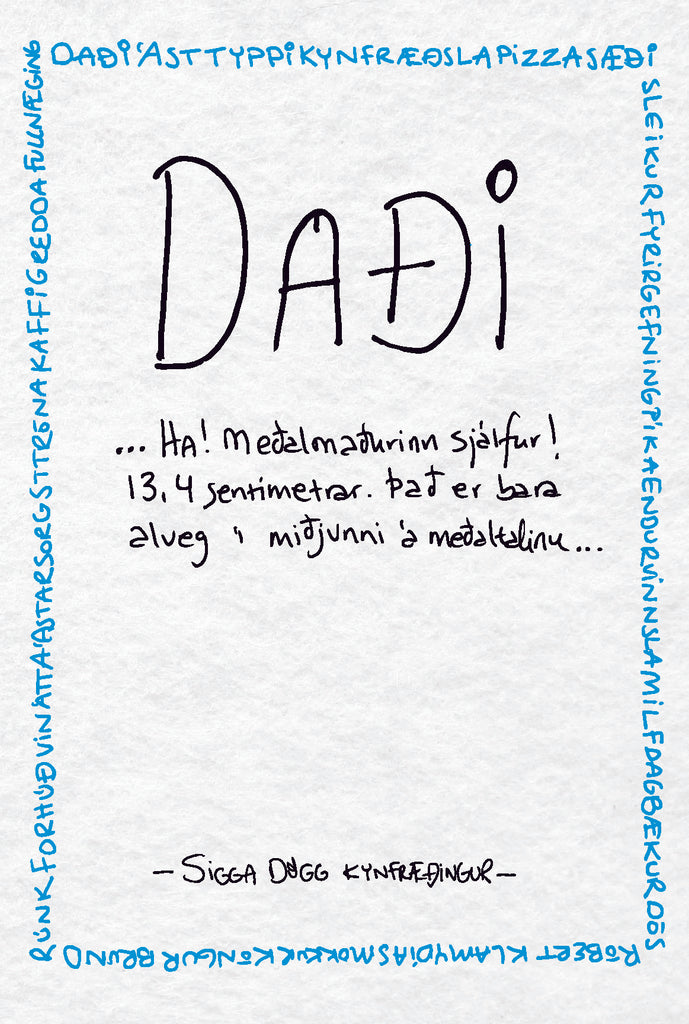 DAÐIÁSTTYPPIKYNFRÆÐSLAPIZZASÆÐI
SLEIKURFYRIRGEFNINGPÍKAENDURVINNSLAMILFDAGBÆKURDÓS
RÓBERT KLAMYDÍASMOKKURKÓNGUR BRUND
RÚNKFORHÚÐVINÁTTAÁSTARSORGSTTRÓNAKAFFIGREDDAFULLNÆGING
DAÐI
... HA! Meðalmaðurinn sjálfur!
13,4 sentimetrar. Það er bara
alveg í miðjunni á meðaltalinu...
- SIGGA DÖGG KYNFRÆÐINGUR -